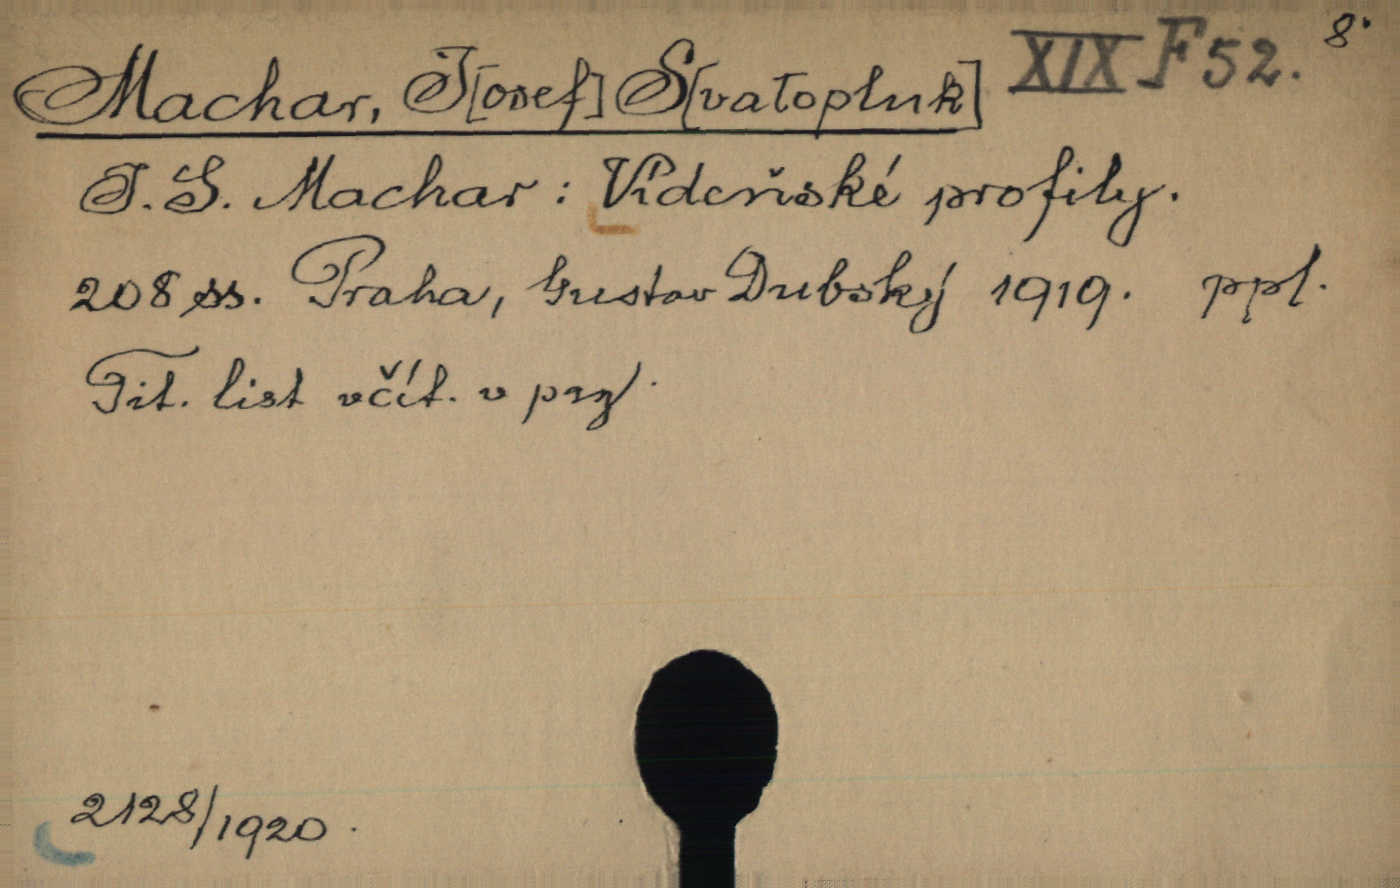 Machar, J[osef] S[vatopluk] XIX F 52. 8°
J. S. Machar : Vídeňské profily.
208 ss. Praha, Gustav Dubský 1919. ppl.
Tit. list včít. v pag.
2128/1920.